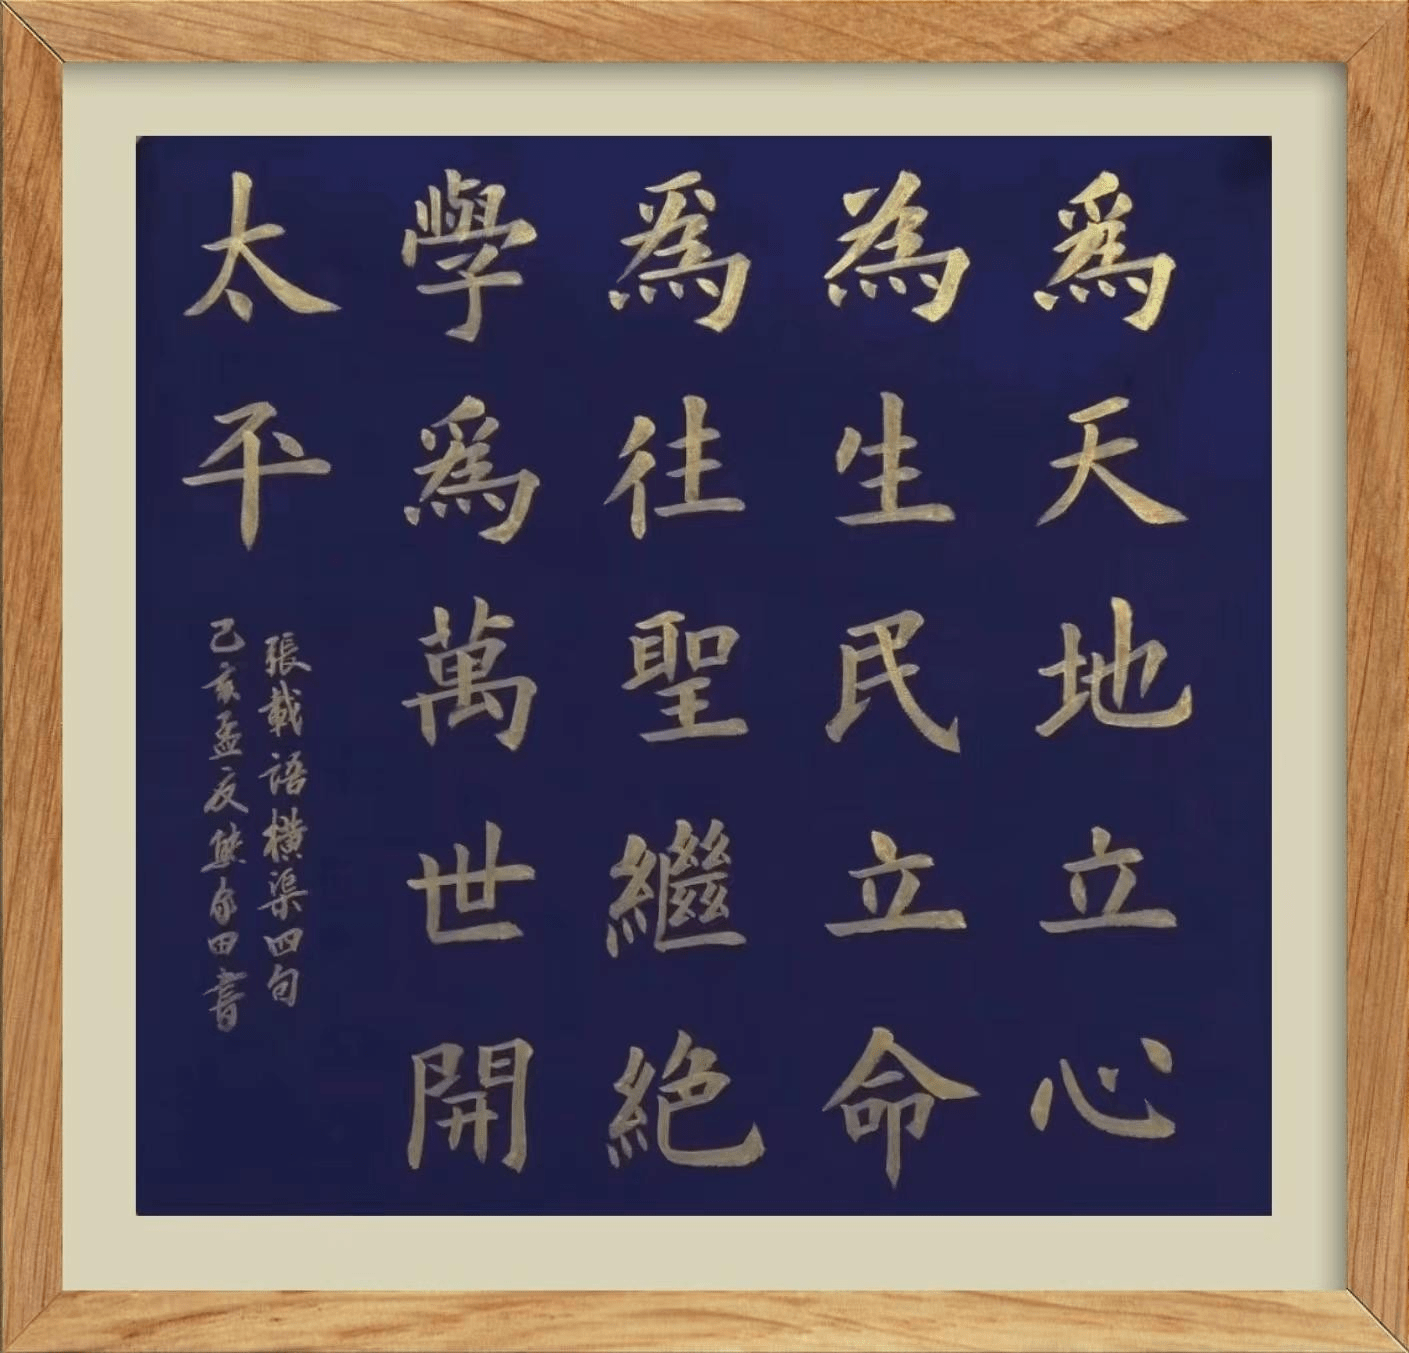 爲天地立心
為生民立命
爲往聖繼絶
學爲萬世開
太平
張載語橫渠四句
己亥孟夏熊家田書